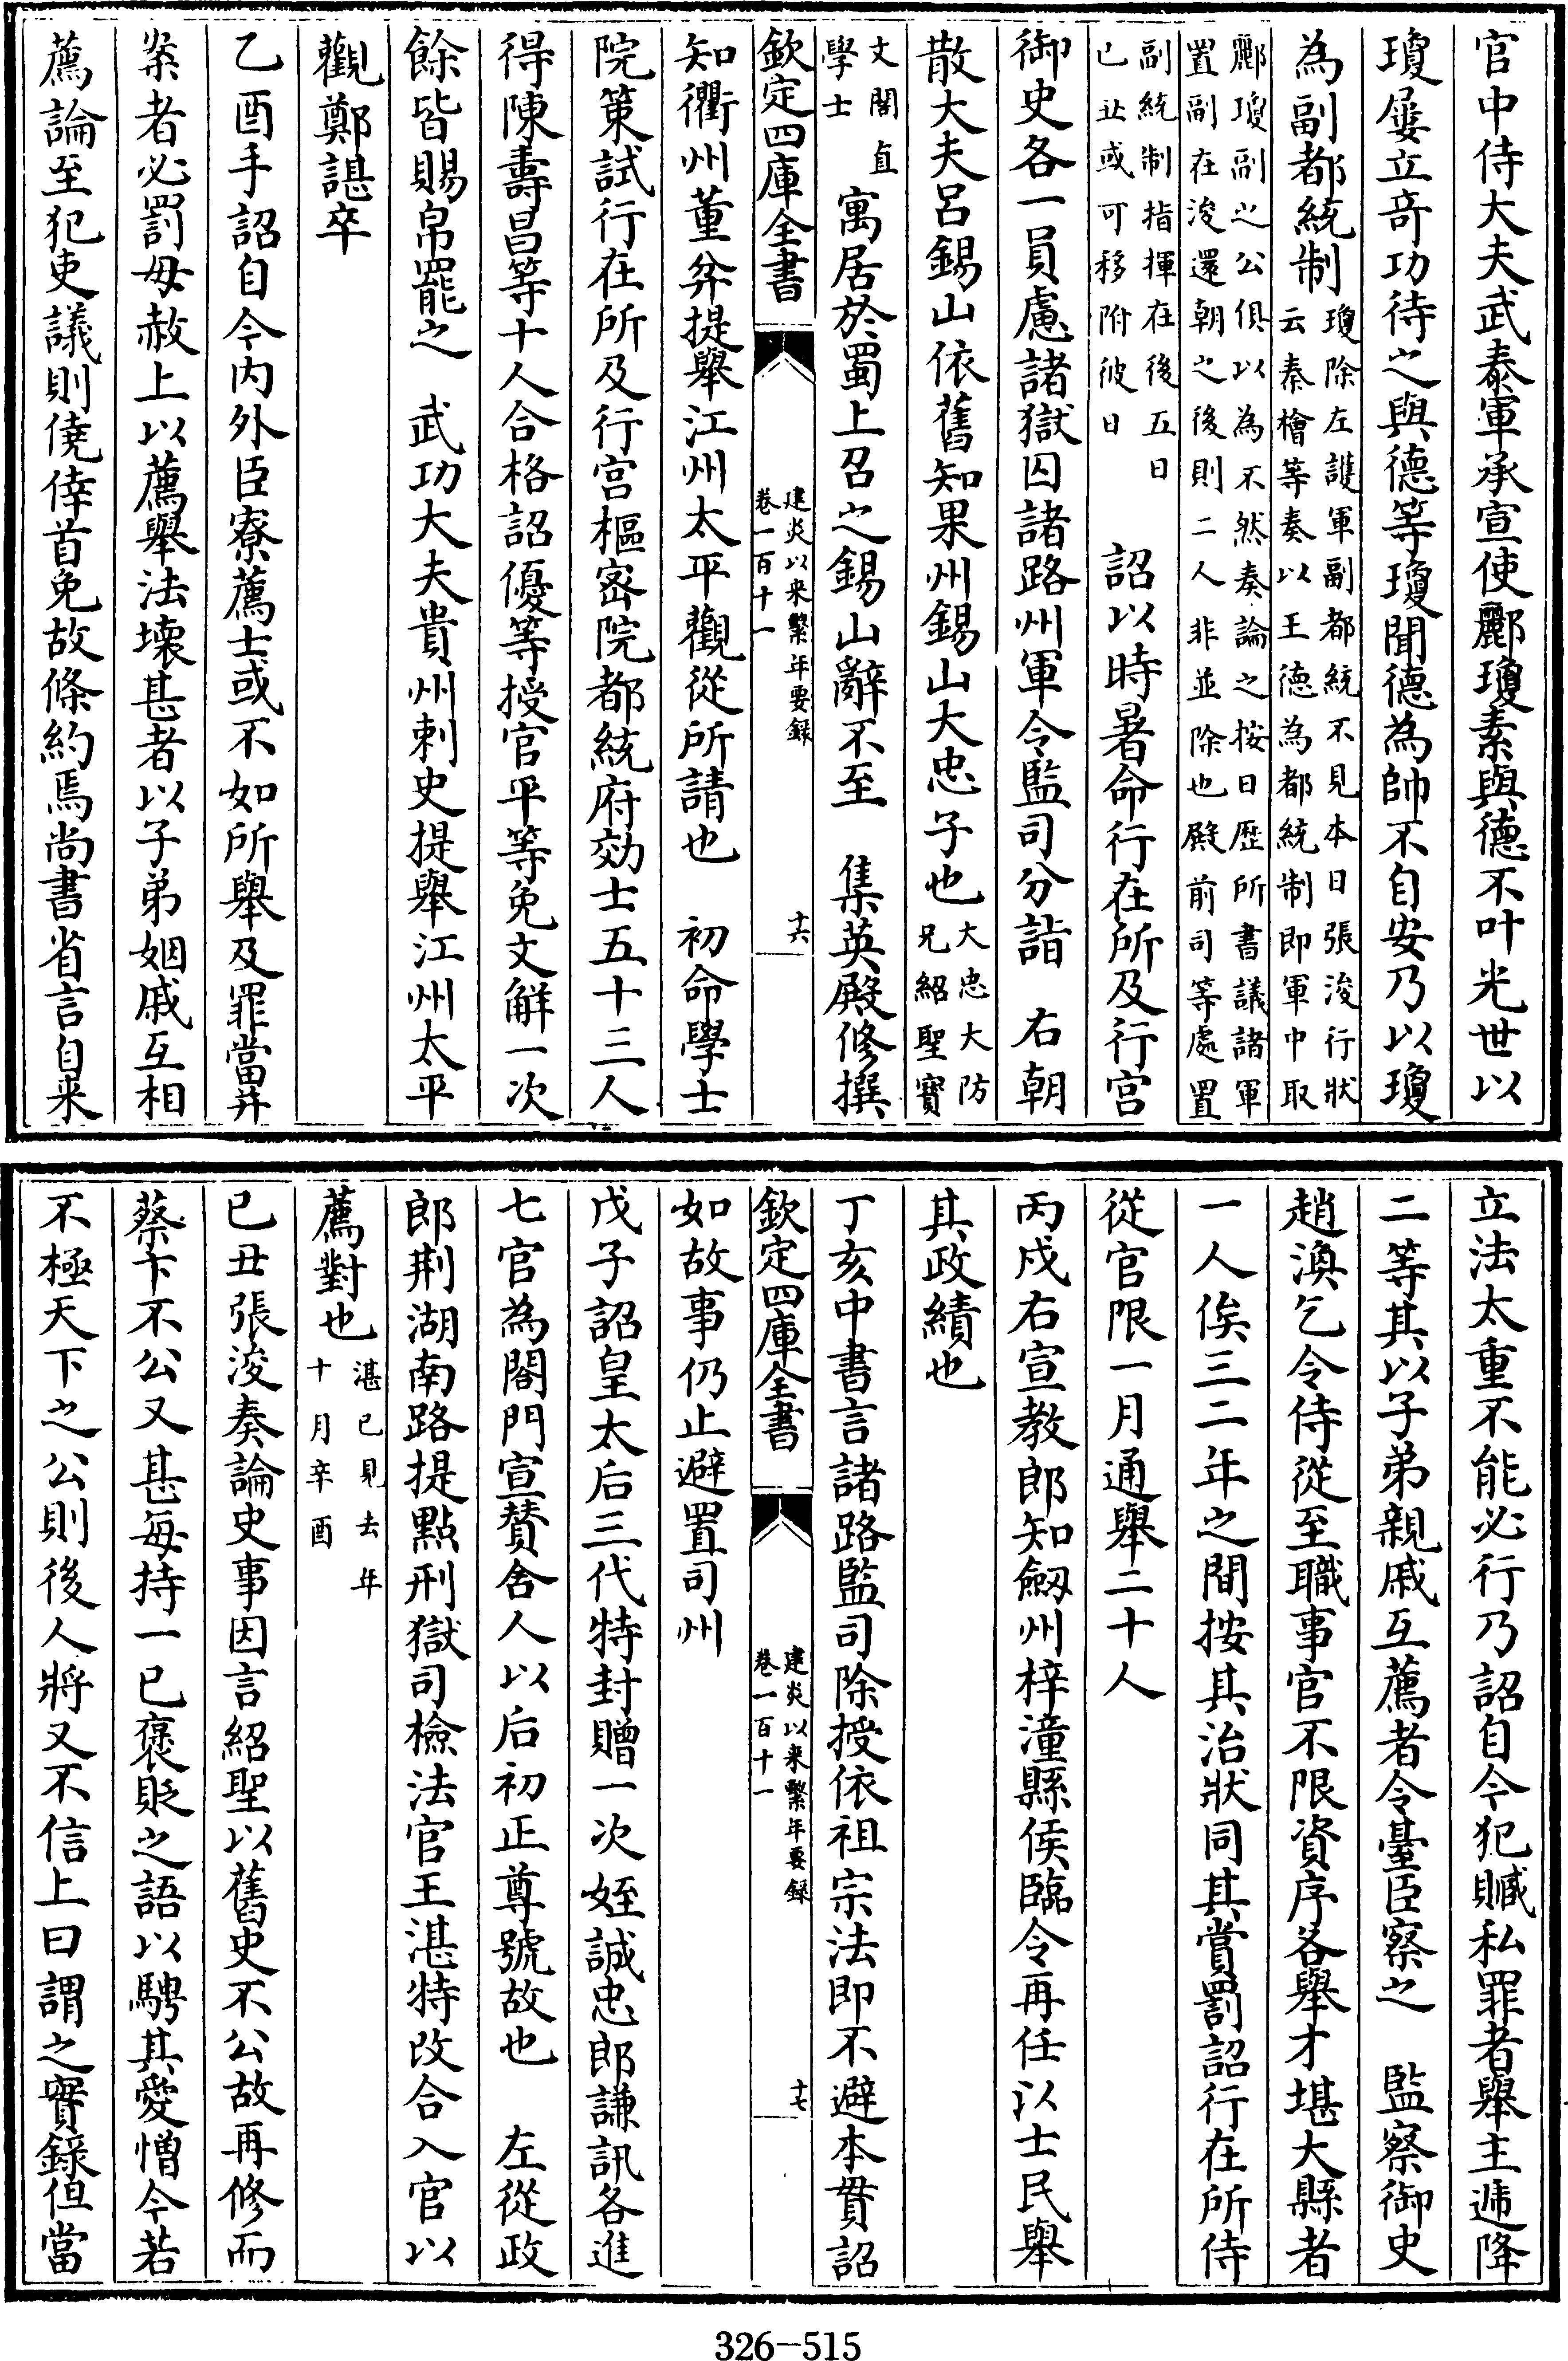 官中侍大夫武泰軍承宣使酈瓊素與德不叶光世以
瓊屢立奇功待之與德等瓊聞德為帥不自安乃以瓊
為副都統制瓊除左護軍副都統不見本日張浚行狀
云秦檜等奏以王德為都統制即軍中取
酈瓊副之公俱以為不然奏論之按日歴所書議諸軍
置副在浚還朝之後則二人非並除也殿前司等處置
副統制指揮在後五日
已丑或可移附彼日　詔以時暑命行在所及行宫
御史各一員慮諸獄囚諸路州軍令監司分詣　右朝
散大夫呂錫山依舊知果州錫山大忠子也大忠大防
兄紹聖寳
文閣直
學士　寓居於蜀上召之錫山辭不至　集英殿修撰
欽定四庫全書
建炎以來繫年要録
卷一百十一
十六
知衢州董弅提舉江州太平觀從所請也　初命學士
院策試行在所及行宫樞宻院都統府効士五十三人
得陳夀昌等十人合格詔優等授官平等免文解一次
餘皆賜帛罷之　武功大夫貴州刺史提舉江州太平
觀鄭諶卒
乙酉手詔自今内外臣寮薦士或不如所舉及罪當并
案者必罰毋赦上以薦舉法壊甚者以子弟姻戚互相
薦論至犯吏議則僥倖首免故條約焉尚書省言自来
立法太重不能必行乃詔自今犯贓私罪者舉主遞降
二等其以子弟親戚互薦者令臺臣察之　監察御史
趙渙乞令侍從至職事官不限資序各舉才堪大縣者
一人俟三二年之間按其治狀同其賞罰詔行在所侍
從官限一月通舉二十人
丙戍右宣教郎知劔州梓潼縣侯臨令再任以士民舉
其政績也
丁亥中書言諸路監司除授依祖宗法即不避本貫詔
欽定四庫全書
建炎以來繫年要録
卷一百十一
十七
如故事仍止避置司州
戊子詔皇太后三代特封贈一次姪誠忠郎謙訊各進
七官為閤門宣贊舍人以后初正尊號故也　左從政
郎荆湖南路提點刑獄司檢法官王湛特改合入官以
薦對也湛已見去年
十月辛酉
已丑張浚奏論史事因言紹聖以舊史不公故再修而
蔡卞不公又甚每持一已褒貶之語以騁其愛憎今若
不極天下之公則後人將又不信上曰謂之實錄但當
326-515